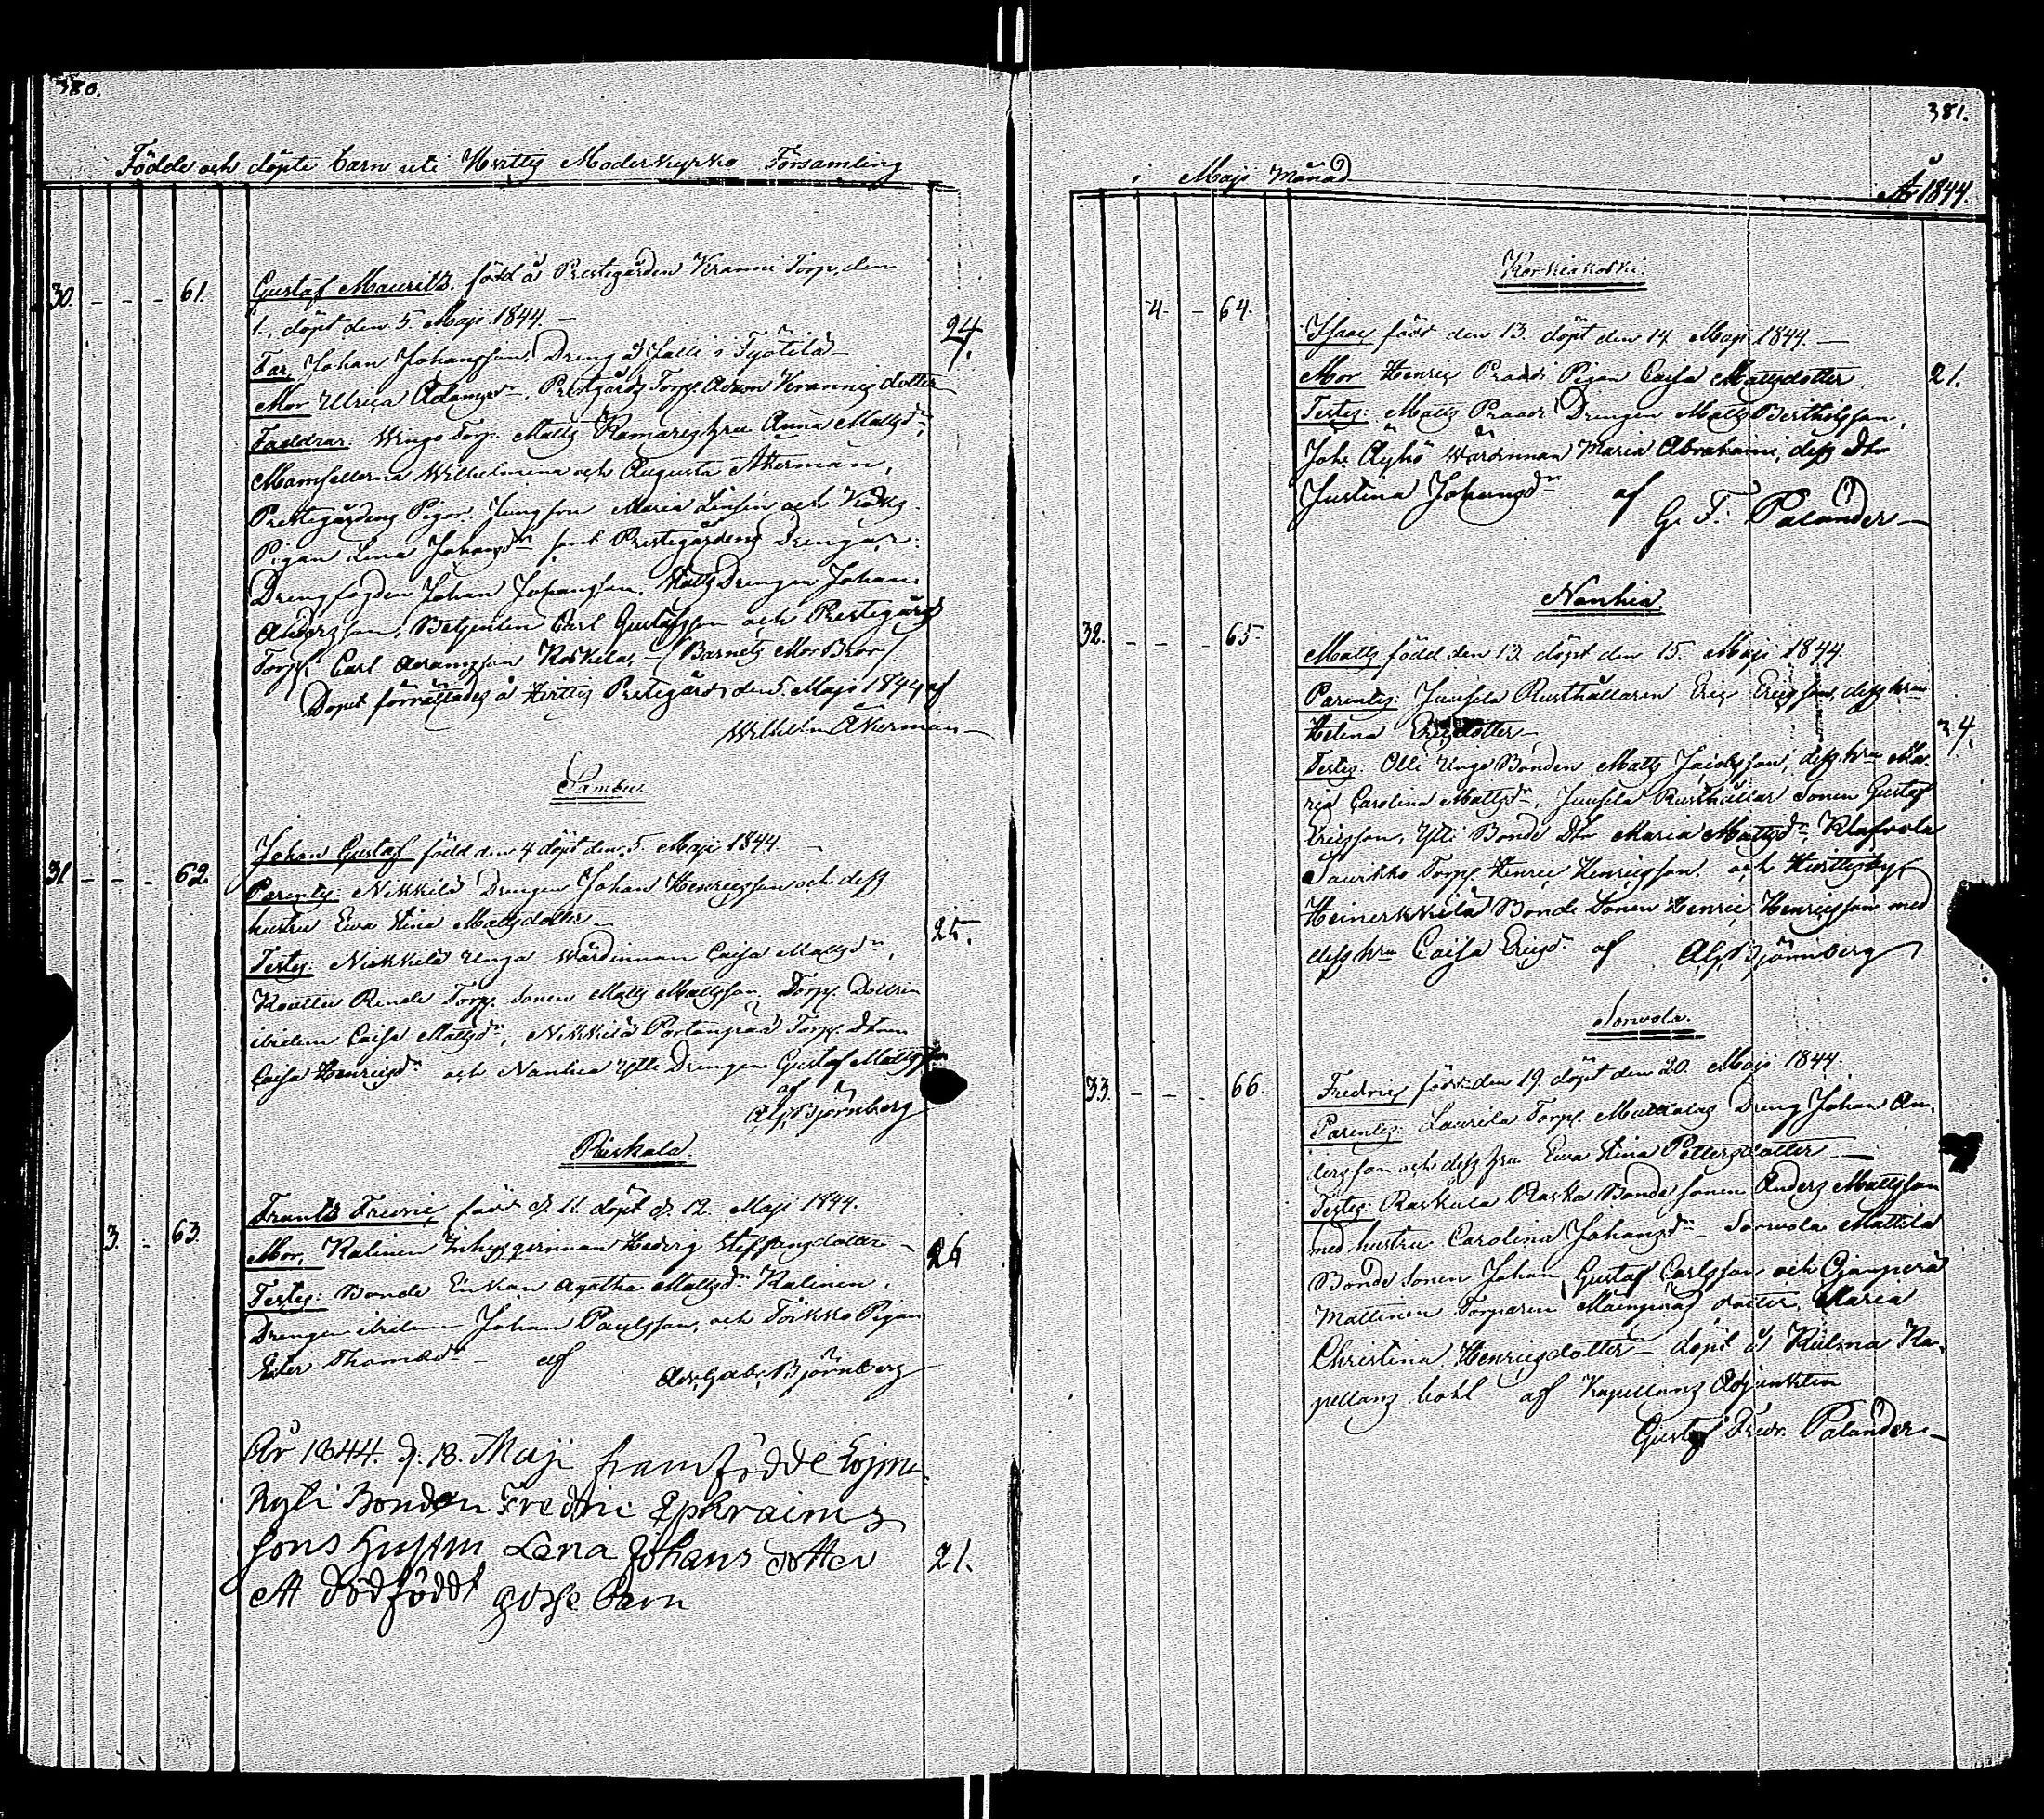 380.
Födde och döpte barn uti Hvittis Moderkyrko Församling
30. - - - 61. Gustaf Maurits. född å Prestegården Kranni Torp, den
1. döpt den 5. Maji 1844. -
Far, Johan Johansson, Dreng å Jalli i Työtilä -
Mor Ulrica Adamsdr, Prestgårds Torp. Adam Krannis dotter
24.
Faddrar: Wingo Torp. Matts Ramaris hru Anna Mattsdr,
Mamsellerna Wilhelmina och Augusta Åkerman,
Prestegårdens Pigor: Jungfru Maria Linsén och
Pigan Lena Johansdr samt Prestegårdens Drengar:
Drengfogden Johan Johansson, Drengen Johan
Andersson, Betjenten Carl Gustafsson och Prestegårds
Torp. Carl Adamsson Koskela, - (Barnets Mor Bror)
Dopet förrättades å Hvittis Prestegård den 5. Maji 1844 af
Wilhelm Åkerman -
Sambu.
31. - - - 62. Johan Gustaf född den 4 döpt den 5. Maji 1844. -
Parentes: Nikkilä Drengen Johan Henricsson och dess
hustru Ewa Stina Mattsdotter -
25.
Testes: Nikkilä Unga Wärdinnan Caisa Mattsdr,
Torp. Sonen Matts Mattsson, Torp. Dottren
ibidem Caisa Mattsdr, Nikkilä Torp. Dtren
Caisa Henricsdr och Nanhia Ylli Drengen Gustaf Mattsson
af
Björnberg
Riskala.
3. - 63. Frants Fredric född d. 11. döpt d. 12. Maji 1844.
Mor, Kalinen Inhysqvinnan Hedvig Steffansdotter -
26
Testes: Bonde Enkan Agatha Mattsdr Kalinen,
Drengen ibidem Johan Paulsson, och Toikko Pigan
Ester Thomasdr - af
Ad. Gab. Björnberg
År 1844. d. 18. Maji framfödde
Bonden Fredric Ephraims
sons Hustru Lena Johans dotter
21.
ett dödfödt gosse Barn
381.
i Maji Månad
År 1844.
Korkiakoski.
4. - 64. Isaac född den 13. döpt den 14 Maji 1844. -
Mor Henric Pigan Caisa Mattsdotter.
21.
Testes: Matts Drengen Matts Berthilsson,
Joh. Äyhö Wärdinnan Maria Abrahami, dess Dtr
Justina Johansdr af
G. F. Palander -
Nanhia
32. - - - 65. Matts född den 13. döpt den 15. Maji 1844.
Parentes: Juusela Rusthållaren Eric Ericsson, dess hru
Helena Ericsdotter -
24.
Testes: Olli Unge Bonden Matts dess hru Ma-
ria Carolina Mattsdr, Juusela Rusthållar Sonen Gustaf
Ericsson, Ylli Bonde Dtr Maria Mattsdr,
Torp. Henric Henricsson, och Hvittisby
Heinerkkilä Bonde Sonen Henric Henricsson med
dess hru Caisa Ericsdr af Björnberg
Sorvola.
33. - - - 66. Fredric född den 19. döpt den 20. Maji 1844.
Parentes: Laurila Torp. Dreng Johan An-
dersson och dess hru Ewa Stina Pettersdotter -
Testes: Raskala Raska Bonde sonen Anders Mattsson
med hustru Carolina Johansdr - Sorvola Mattila
Bonde Sonen Johan Gustaf Carlsson och
Mattinen Torparen dotter, Maria
Christina Henricsdotter - döpt å Kulma Ka-
pellans bohl af Kapellans Adjunkten
Gustaf Fredr. Palander -